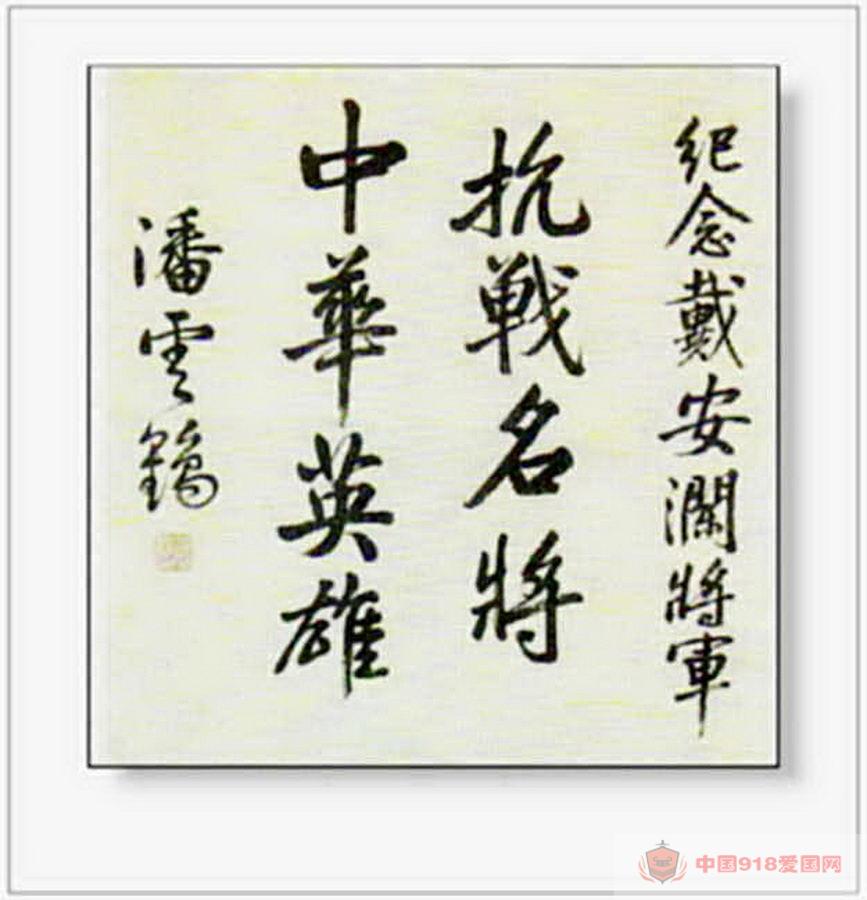 纪念戴安澜將軍
抗戦名將
中華英雄
潘雲鶴
中国918爱国网